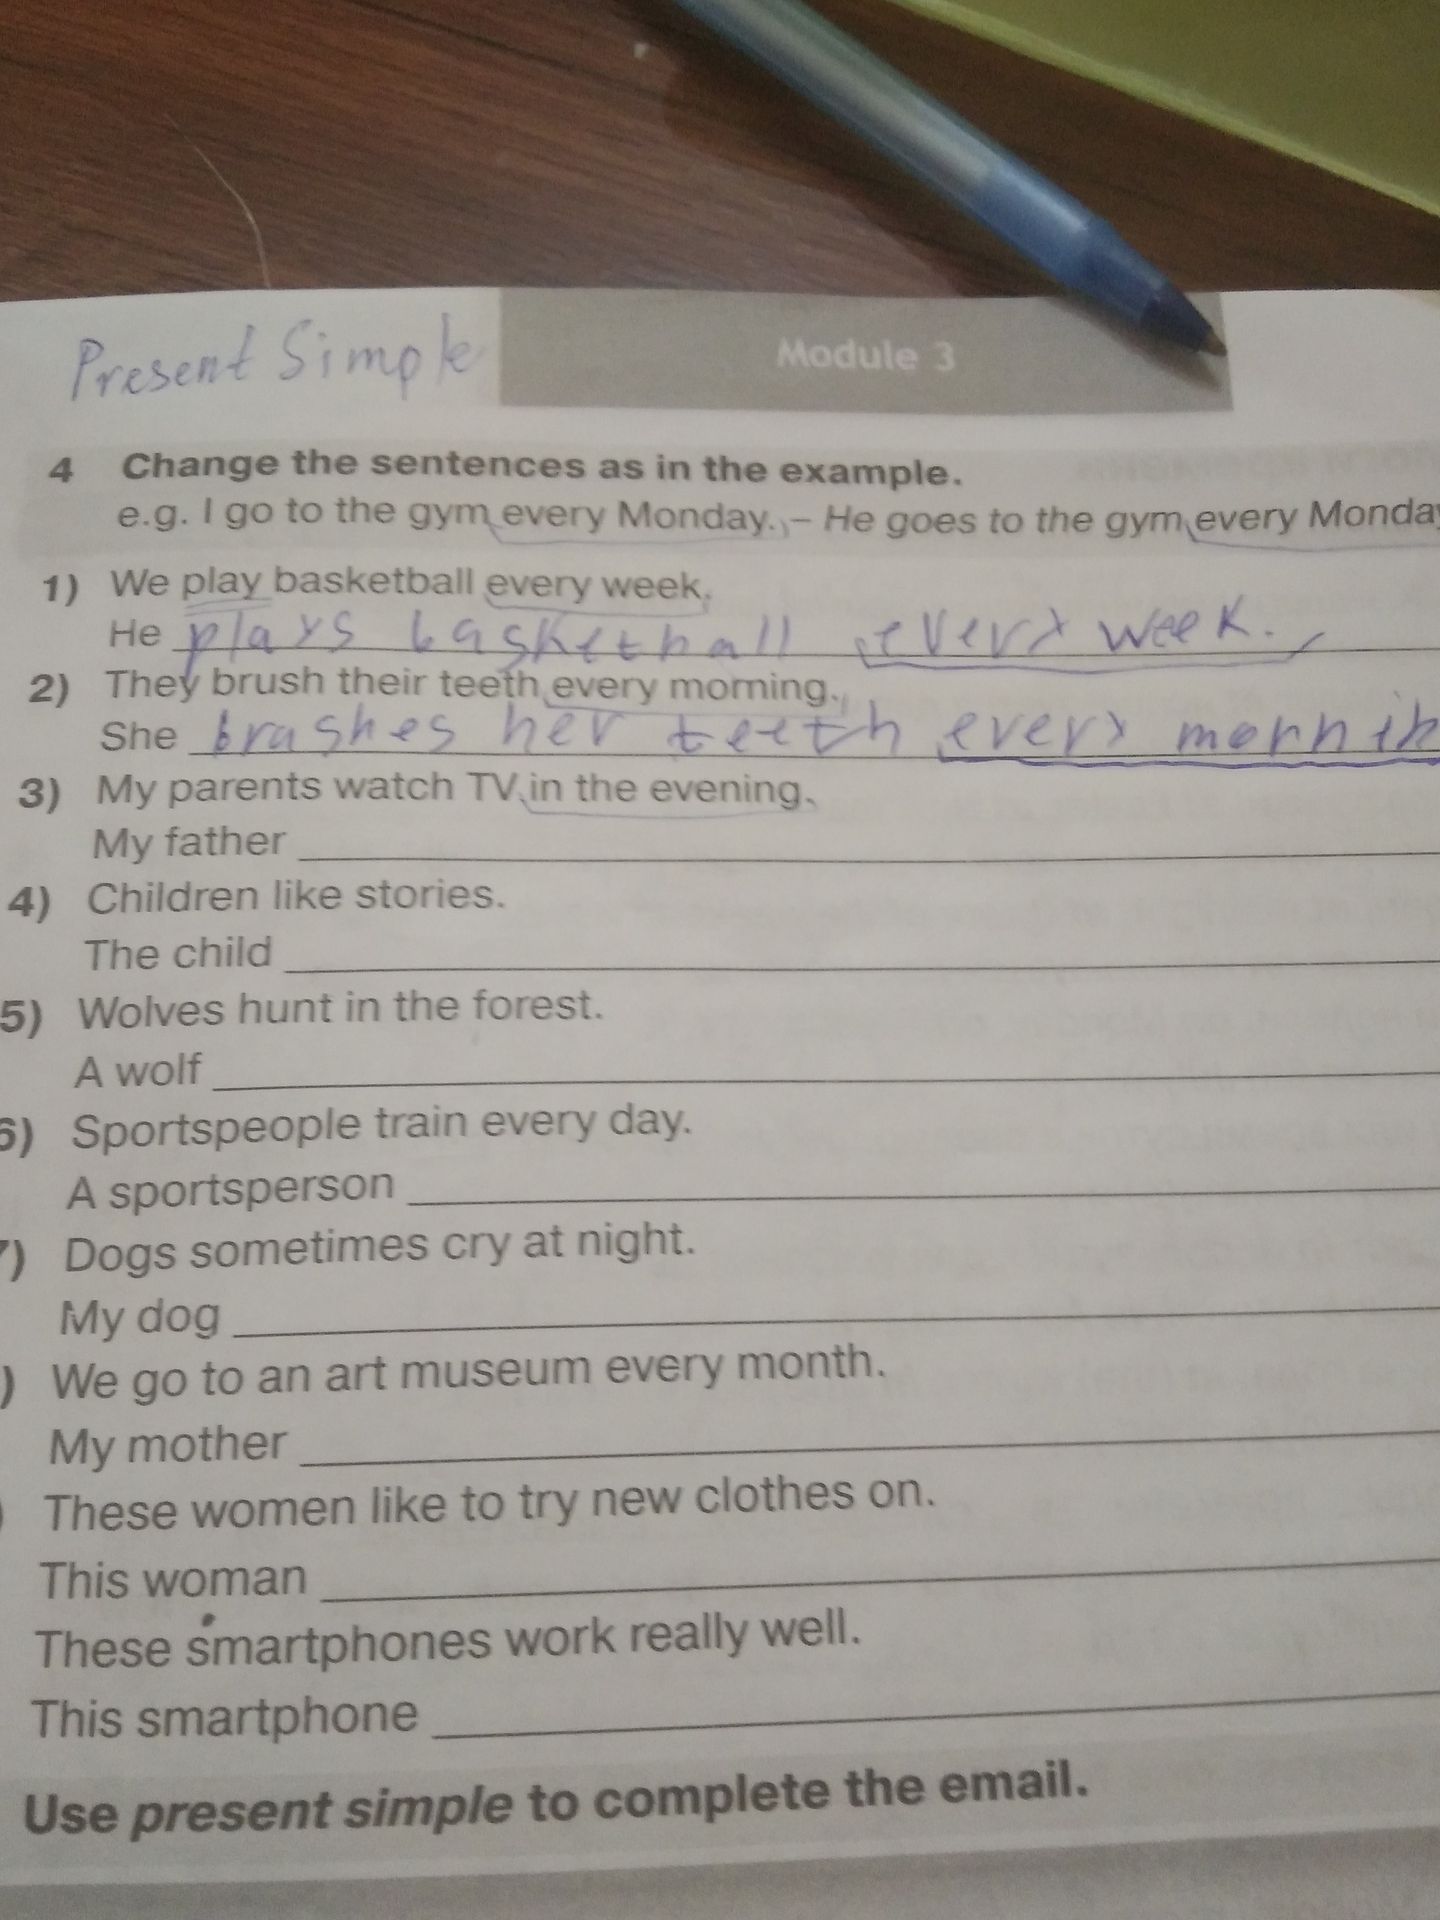 Present Simple
Module 3
4 Change the sentences as in the example.
e.g. I go to the gym every Monday. – He goes to the gym every Monday
1) We play basketball every week.
He plays basketball every week.
2) They brush their teeth every morning.
She brashes her teeth every mornin
3) My parents watch TV in the evening.
My father
4) Children like stories.
The child
5) Wolves hunt in the forest.
A wolf
6) Sportspeople train every day.
A sportsperson
7) Dogs sometimes cry at night.
My dog
) We go to an art museum every month.
My mother
) These women like to try new clothes on.
This woman
These smartphones work really well.
This smartphone
Use present simple to complete the email.